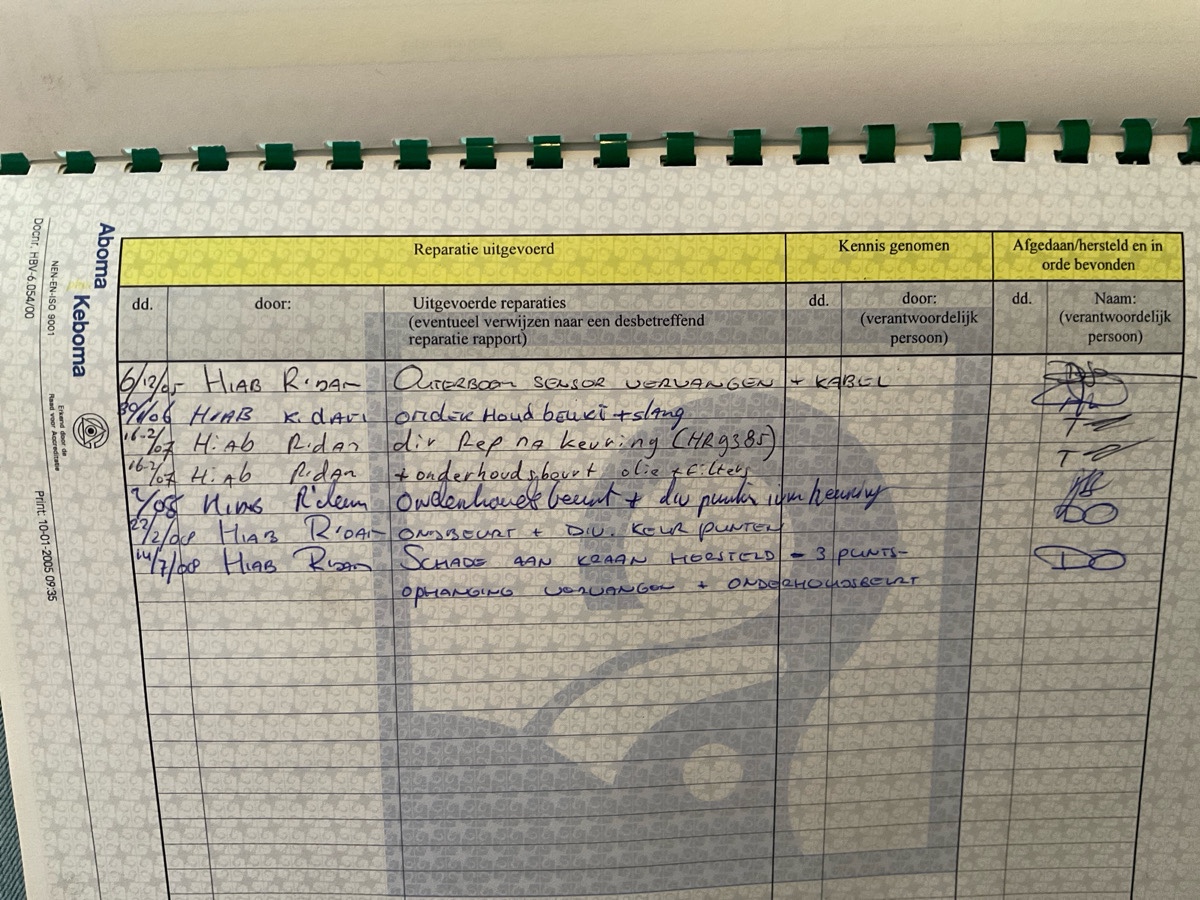 Aboma Keboma
NEN-EN-ISO 9001
Erkend door de
Raad voor Accreditatie
Docnr. HBV-6.054/00
Print: 10-01-2005 09:35
Reparatie uitgevoerd
Kennis genomen
Afgedaan/hersteld en in
orde bevonden
dd.
door:
Uitgevoerde reparaties
(eventueel verwijzen naar een desbetreffend
reparatie rapport)
dd.
door:
(verantwoordelijk
persoon)
dd.
Naam:
(verantwoordelijk
persoon)
6/12/05 HIAB R'DAM OUTERBOOM SENSOR VERVANGEN + KABEL
HIAB onderhoud beurt + slang
16-2/07 Hiab R.dam div Rep na keuring (HR9385)
16-2/07 Hiab R.dam + onderhoudsbeurt olie + filters
R'dam Onderhouds beurt + div punten keuring
22/2/08 HIAB R'DAM ONDSBEURT + DIV. KEUR PUNTEN DO
14/7/08 HIAB R'DAM SCHADE AAN KRAAN HERSTELD - 3 PUNTS- DO
OPHANGING VERVANGEN + ONDERHOUDSBEURT